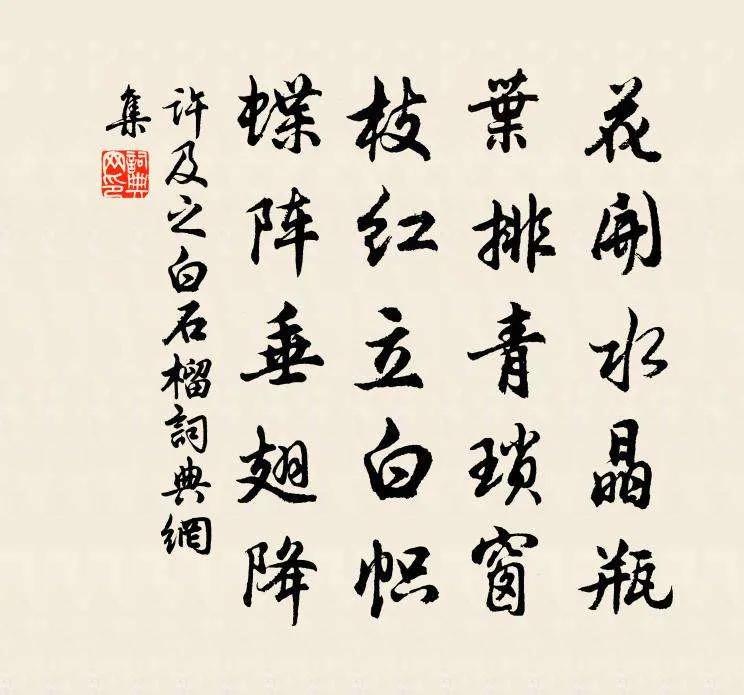 花開水晶瓶
葉排青瑣窗
枝红立白帜
蝶阵垂翅降
许及之白石榴詞典網
集
詞典
网印